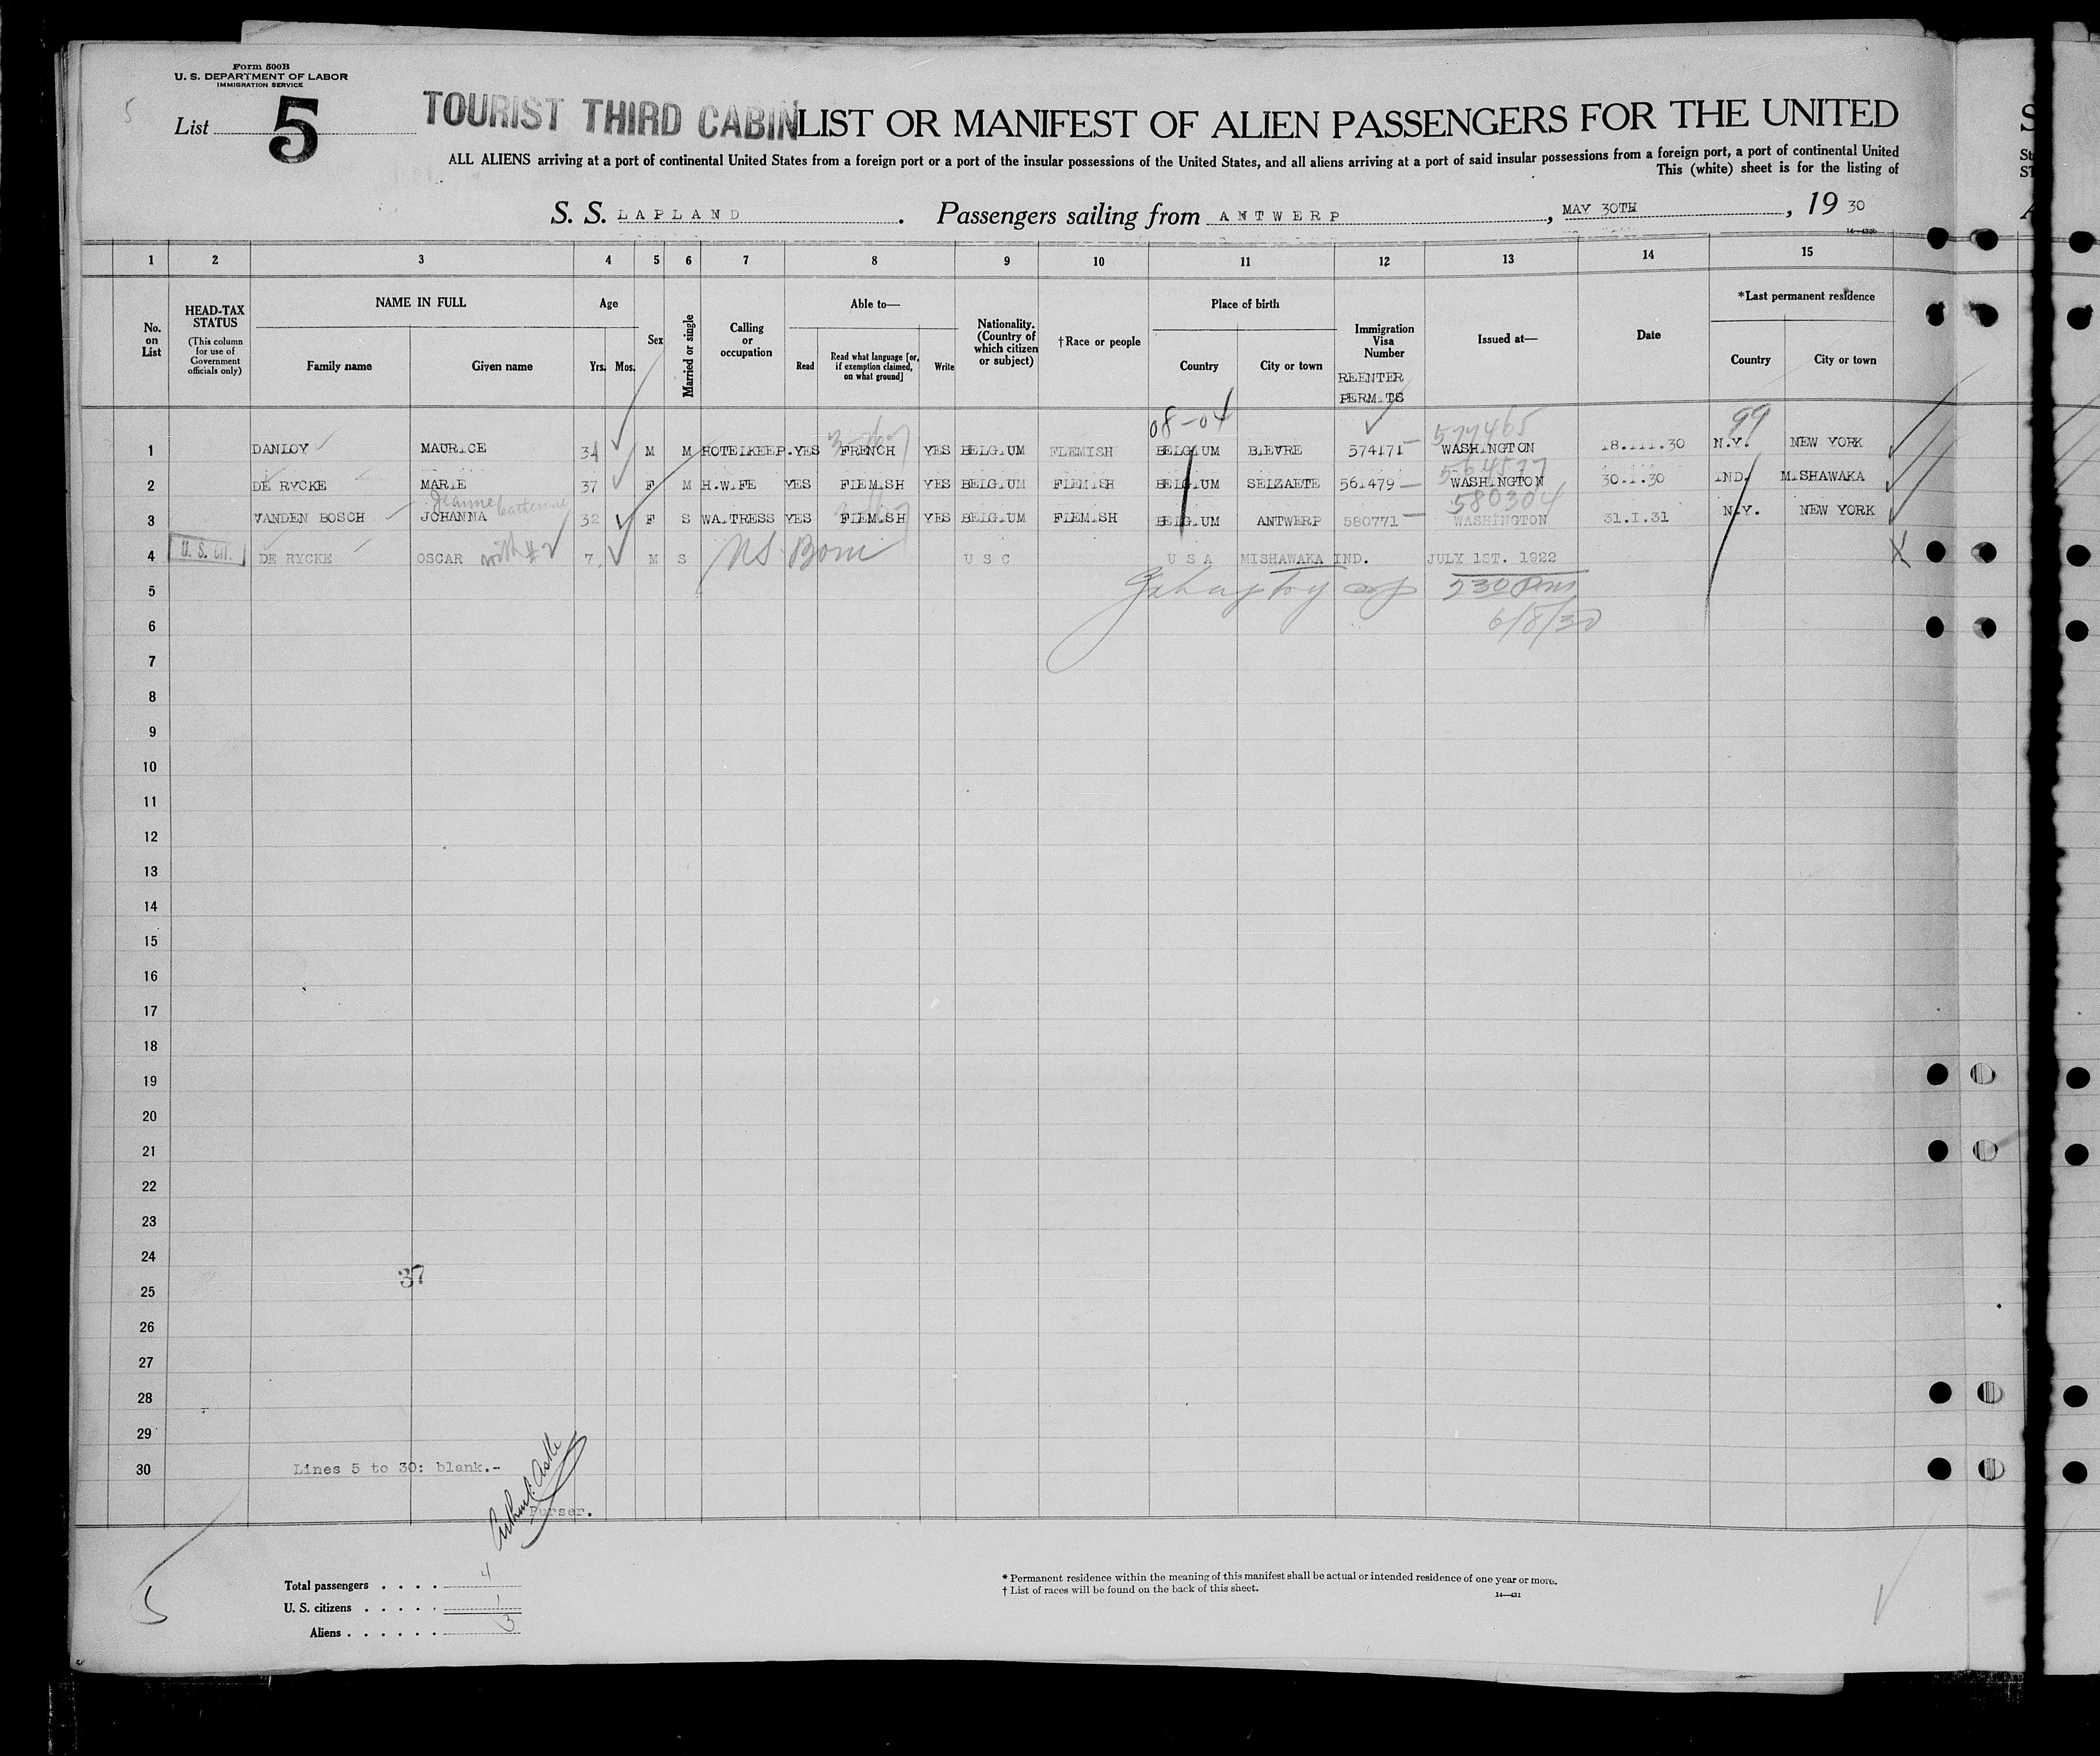 Form 500B
U. S. DEPARTMENT OF LABOR
IMMIGRATION SERVICE
5
List 5
TOURIST THIRD CABIN LIST OR MANIFEST OF ALIEN PASSENGERS FOR THE UNITED
ALL ALIENS arriving at a port of continental United States from a foreign port or a port of the insular possessions of the United States, and all aliens arriving at a port of said insular possessions from a foreign port, a port of continental United
This (white) sheet is for the listing of
S. S. LAPLAND. Passengers sailing from ANTWERP, MAY 30TH, 19 30
14—430b
1 2 3 4 5 6 7 8 9 10 11 12 13 14 15
No. on List
HEAD-TAX STATUS
(This column for use of Government officials only)
NAME IN FULL
Family name Given name
Age
Yrs. Mos.
Sex
Married or single
Calling or occupation
Able to—
Read Read what language [or, if exemption claimed, on what ground] Write
Nationality. (Country of which citizen or subject)
†Race or people
Place of birth
Country City or town
Immigration Visa Number
REENTER PERM.TS
Issued at—
Date
*Last permanent residence
Country City or town
08-04 577465 99
1 DANLOY MAUR.CE 34 M M HOTELKEEP. YES FRENCH YES BELG.UM FLEMISH BELG.UM B.EVRE 574171 WASH.NGTON 18.III.30 N.Y. NEW YORK
564577
2 DE RYCKE MAR.E 37 F M H.W.FE YES FLEM.SH YES BELG.UM FLEM.SH BELG.UM SELZAETE 56.479 WASH.NGTON 30.I.30 .ND. M.SHAWAKA
Jeanne Catherine 580304
3 VANDEN BOSCH JOHANNA 32 F S WA.TRESS YES FLEM.SH YES BELG.UM FLEM.SH BELG.UM ANTWERP 580771 WASHINGTON 31.I.31 N.Y. NEW YORK
4 U. S. Cit. DE RYCKE OSCAR with #2 7. M S US Born U S C U S A MISHAWAKA IND. JULY 1ST. 1922
5
6 6/8/30
7
8
9
10
11
12
13
14
15
16
17
18
19
20
21
22
23
24
37
25
26
27
28
29
30 Lines 5 to 30: blank.-
Purser.
5
Total passengers . . . . 4
U. S. citizens . . . . . 1
Aliens . . . . . . 3
* Permanent residence within the meaning of this manifest shall be actual or intended residence of one year or more.
† List of races will be found on the back of this sheet.
14—431